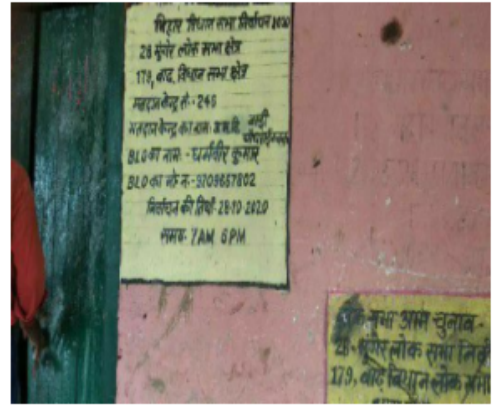 बिहार विधान सभा निर्वाचन 2020
28 मुंगेर लोक सभा क्षेत्र
179, बाढ़ विधान सभा क्षेत्र
मतदान केन्द्र सं:-246
मतदान केन्द्र का नाम:
BLO का नाम:- धर्मवीर कुमार
BLO का मो० न:-9709657802
निर्वाचन की तिथी-28-10-2020
समय- 7AM 6PM
सभा आम चुनाव-
28-मुंगेर लोक सभा
179, बाढ़ विधान लोक सभा